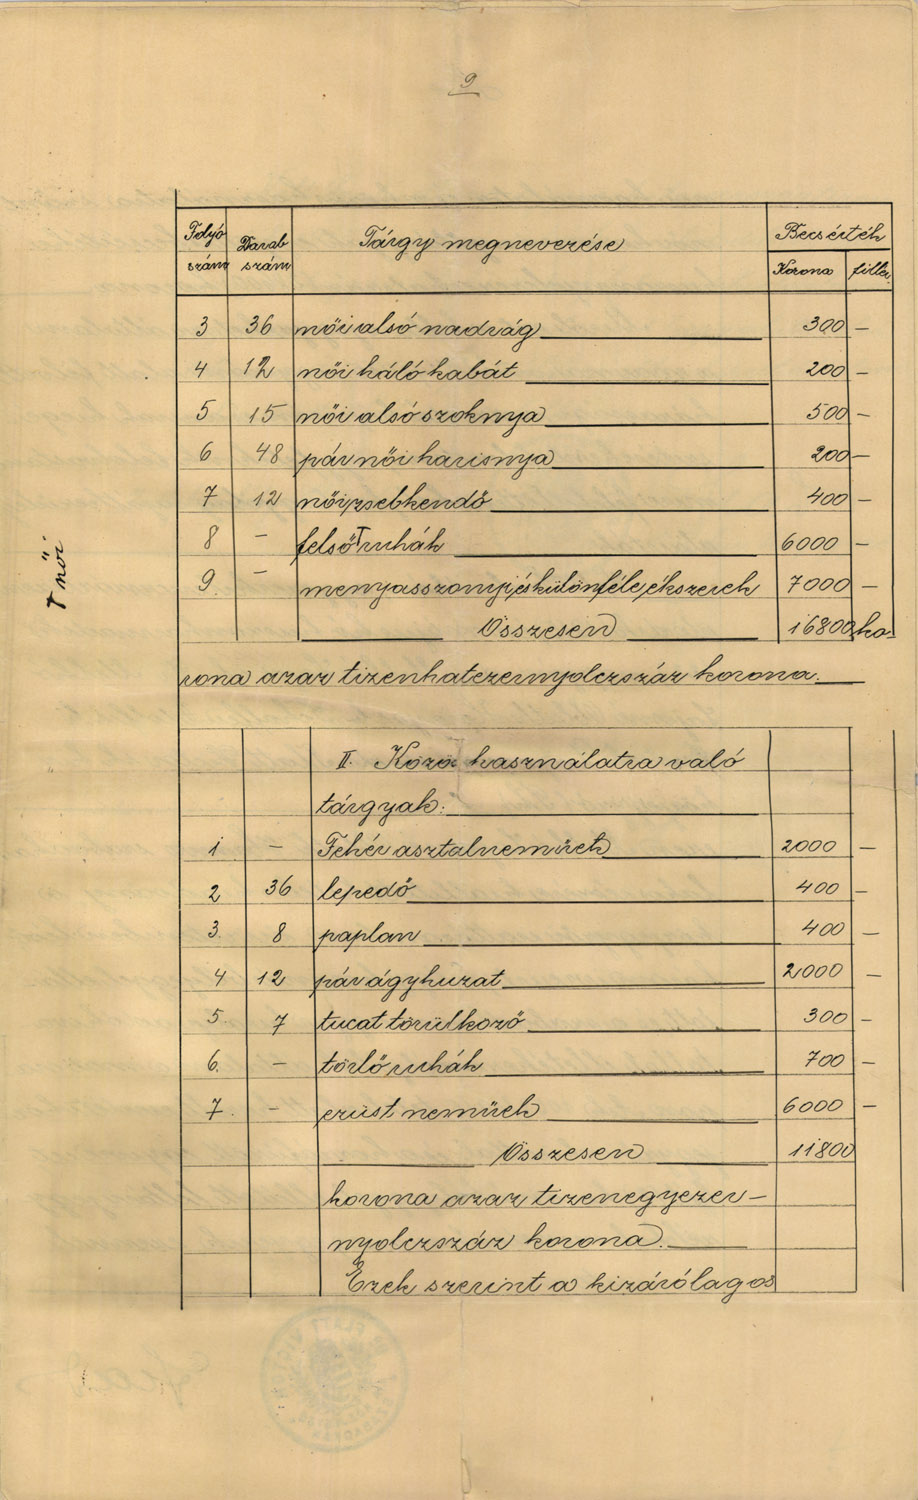 9
Folyó szám Darab szám Tárgy megnevezése Becsérték
Korona fillér
3 36 női alsó nadrág 300 –
4 12 női háló kabát 200 –
5 15 női alsó szoknya 500 –
6 48 pár női harisnya 200 –
7 12 női zsebkendő 400 –
8 – felső ⊤ ruhák 6000 –
⊤ női
9. – menyasszonyi és különféle ékszerek 7000 –
Összesen 16800 ko-
rona azaz tizenhatezernyolczszáz korona.
II. Közös használatra való
tárgyak:
1 – Fehér asztalneműek 2000 –
2 36 lepedő 400 –
3. 8 paplan 400 –
4 12 pár ágyhuzat 2000 –
5. 7 tucat törülköző 300 –
6. – törlő ruhák 700 –
7. – ezüst neműek 6000 –
Összesen 11800
korona azaz tizenegyezer-
nyolczszáz korona.
Ezek szerint a kizárólagos